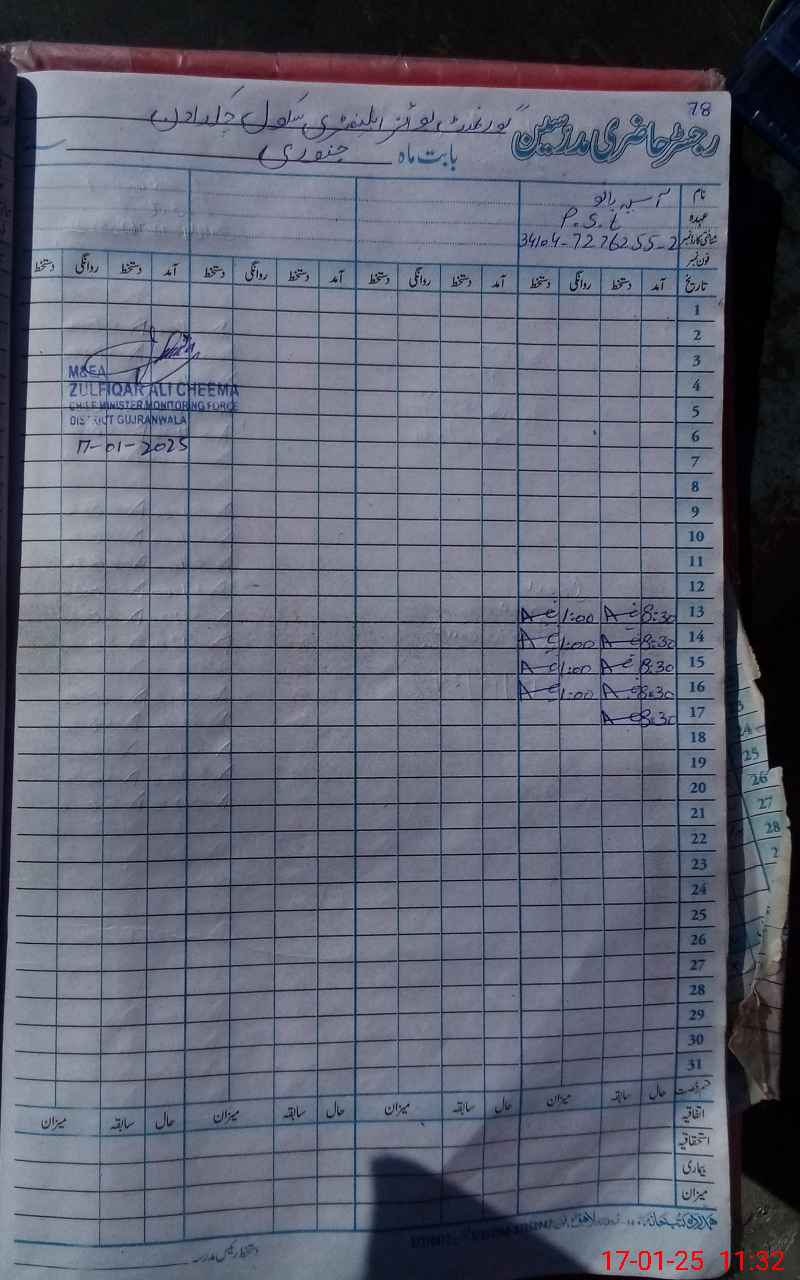 78
گورنمنٹ بوائز ایلیمنٹری سکول
رجسٹر حاضری مدرسین
بابت ماہ جنوری
نام آسیہ بانو
عہدہ P.S.T
شناختی کارڈ نمبر 34104-7276255-2
فون نمبر
تاریخ آمد دستخط روانگی دستخط آمد دستخط روانگی دستخط آمد دستخط روانگی دستخط آمد دستخط روانگی دستخط
1
2
3
4
5
6
7
8
9
10
11
12
13 8:30 1:00
14 8:30 1:00
15 8:30 1:00
16 8:30 1:00
17 8:30
18
19
20
21
22
23
24
25
26
27
28
29
30
31
M&EA
ZULFIQAR ALI CHEEMA
CHIEF MINISTER MONITORING FORCE
DISTRICT GUJRANWALA
17-01-2025
قسم رخصت حال سابقہ میزان حال سابقہ میزان حال سابقہ میزان حال سابقہ میزان
اتفاقیہ
استحقاقیہ
بیماری
میزان
دستخط رئیس مدرسہ
24
25
26
27
28
17-01-25 11:32